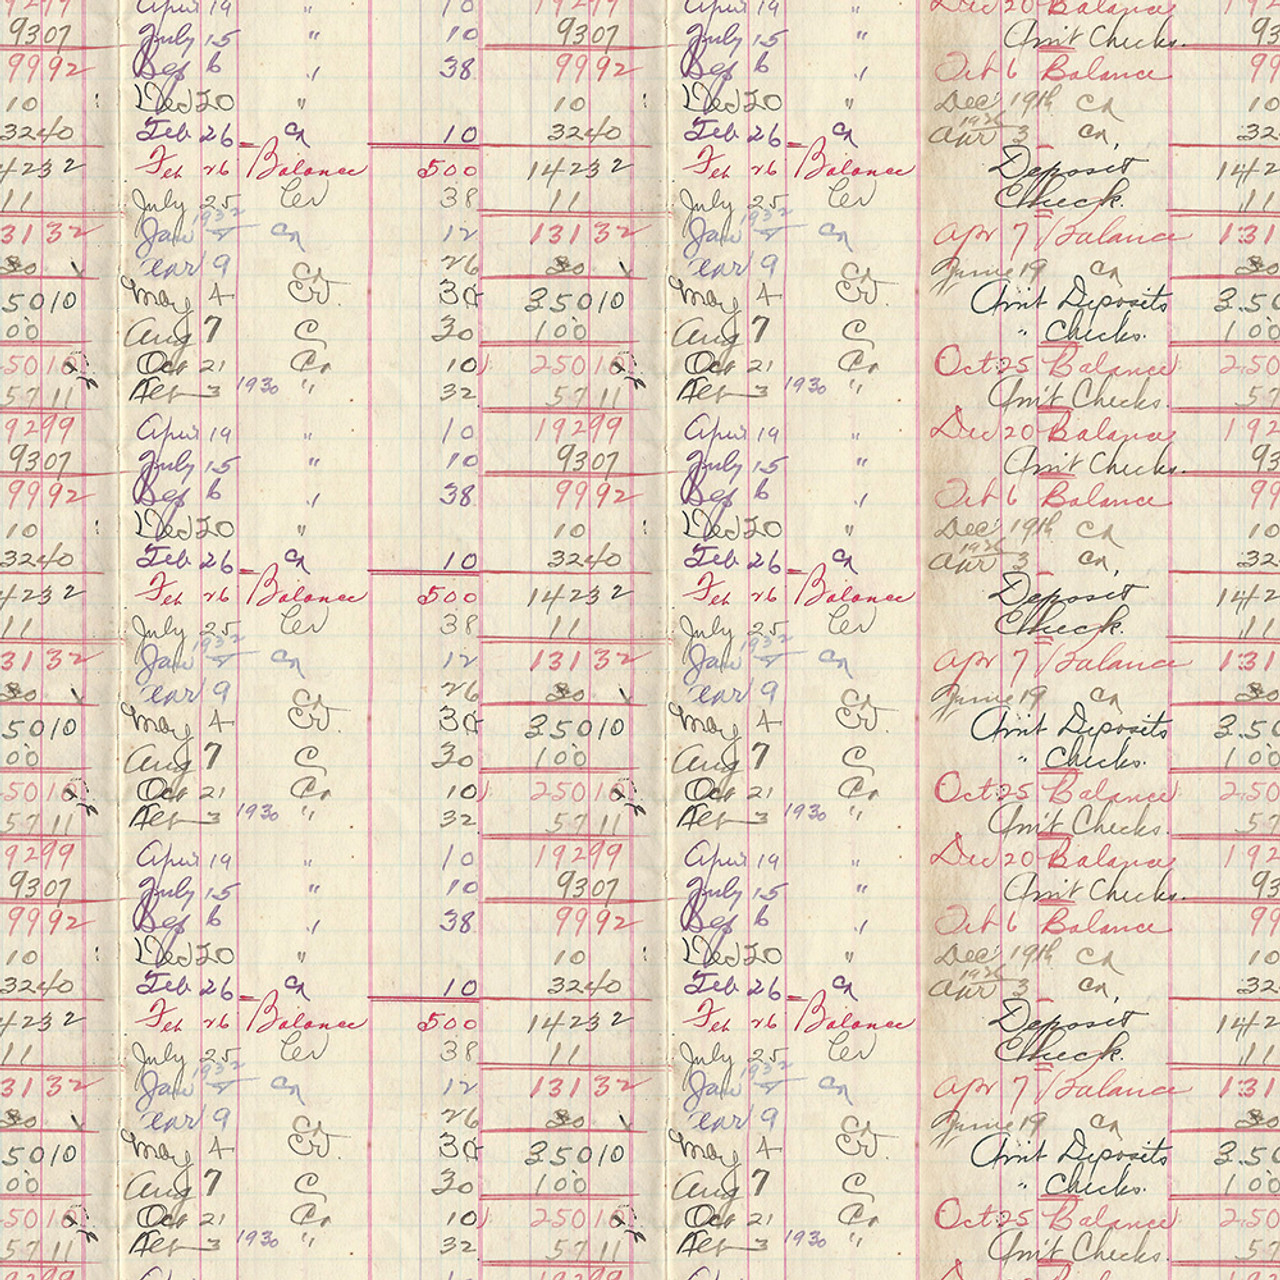 9299 April 19 " 10 19299 April 19 " Dec 20 Balance 192
9307 July 15 " 10 9307 July 15 " Am't Checks. 93
9992 Sep 6 " 38 9992 Sep 6 " Oct 6 Balance 99
10 Dec 20 " 10 Dec 20 " Dec 19th Cr 10
3240 Feb 26 Cr 10 3240 Feb 26 Cr Apr 3 Cr, 32
4232 Feb 26 Balance 500 14232 Feb 26 Balance Deposit 142
11 July 25 Cr 38 11 July 25 Cr Check. 11
3132 Jan 1932 Cr 12 13132 Jan 1932 Cr Apr 7 Balance 131
30 9 Cr 26 30 9 Cr June 19 Cr 30
5010 May 4 Cr. 30 35010 May 4 Cr. Am't Deposits 3.50
00 Aug 7 C 30 100 Aug 7 C " Checks. 100
5010 Oct 21 Cr 10 25010 Oct 21 Cr Oct. 25 Balance 250
5711 3 1930 " 32 5711 3 1930 " Am't Checks. 57
9299 April 19 " 10 19299 April 19 " Dec 20 Balance 192
9307 July 15 " 10 9307 July 15 " Am't Checks. 93
9992 Sep 6 " 38 9992 Sep 6 " Oct 6 Balance 99
10 Dec 20 " 10 Dec 20 " Dec 19th Cr 10
3240 Feb 26 Cr 10 3240 Feb 26 Cr Apr 3 Cr, 32
4232 Feb 26 Balance 500 14232 Feb 26 Balance Deposit 142
11 July 25 Cr 38 11 July 25 Cr Check. 11
3132 Jan 1932 Cr 12 13132 Jan 1932 Cr Apr 7 Balance 131
30 9 Cr 26 30 9 Cr June 19 Cr 30
5010 May 4 Cr. 30 35010 May 4 Cr. Am't Deposits 3.50
00 Aug 7 C 30 100 Aug 7 C " Checks. 100
5010 Oct 21 Cr 10 25010 Oct 21 Cr Oct. 25 Balance 250
5711 3 1930 " 32 5711 3 1930 " Am't Checks. 57
9299 April 19 " 10 19299 April 19 " Dec 20 Balance 192
9307 July 15 " 10 9307 July 15 " Am't Checks. 93
9992 Sep 6 " 38 9992 Sep 6 " Oct 6 Balance 99
10 Dec 20 " 10 Dec 20 " Dec 19th Cr 10
3240 Feb 26 Cr 10 3240 Feb 26 Cr Apr 3 Cr, 32
4232 Feb 26 Balance 500 14232 Feb 26 Balance Deposit 142
11 July 25 Cr 38 11 July 25 Cr Check. 11
3132 Jan 1932 Cr 12 13132 Jan 1932 Cr Apr 7 Balance 131
30 9 Cr 26 30 9 Cr June 19 Cr 30
5010 May 4 Cr. 30 35010 May 4 Cr. Am't Deposits 3.50
00 Aug 7 C 30 100 Aug 7 C " Checks. 100
5010 Oct 21 Cr 10 25010 Oct 21 Cr Oct. 25 Balance 250
5711 3 1930 " 32 5711 3 1930 " Am't Checks. 57